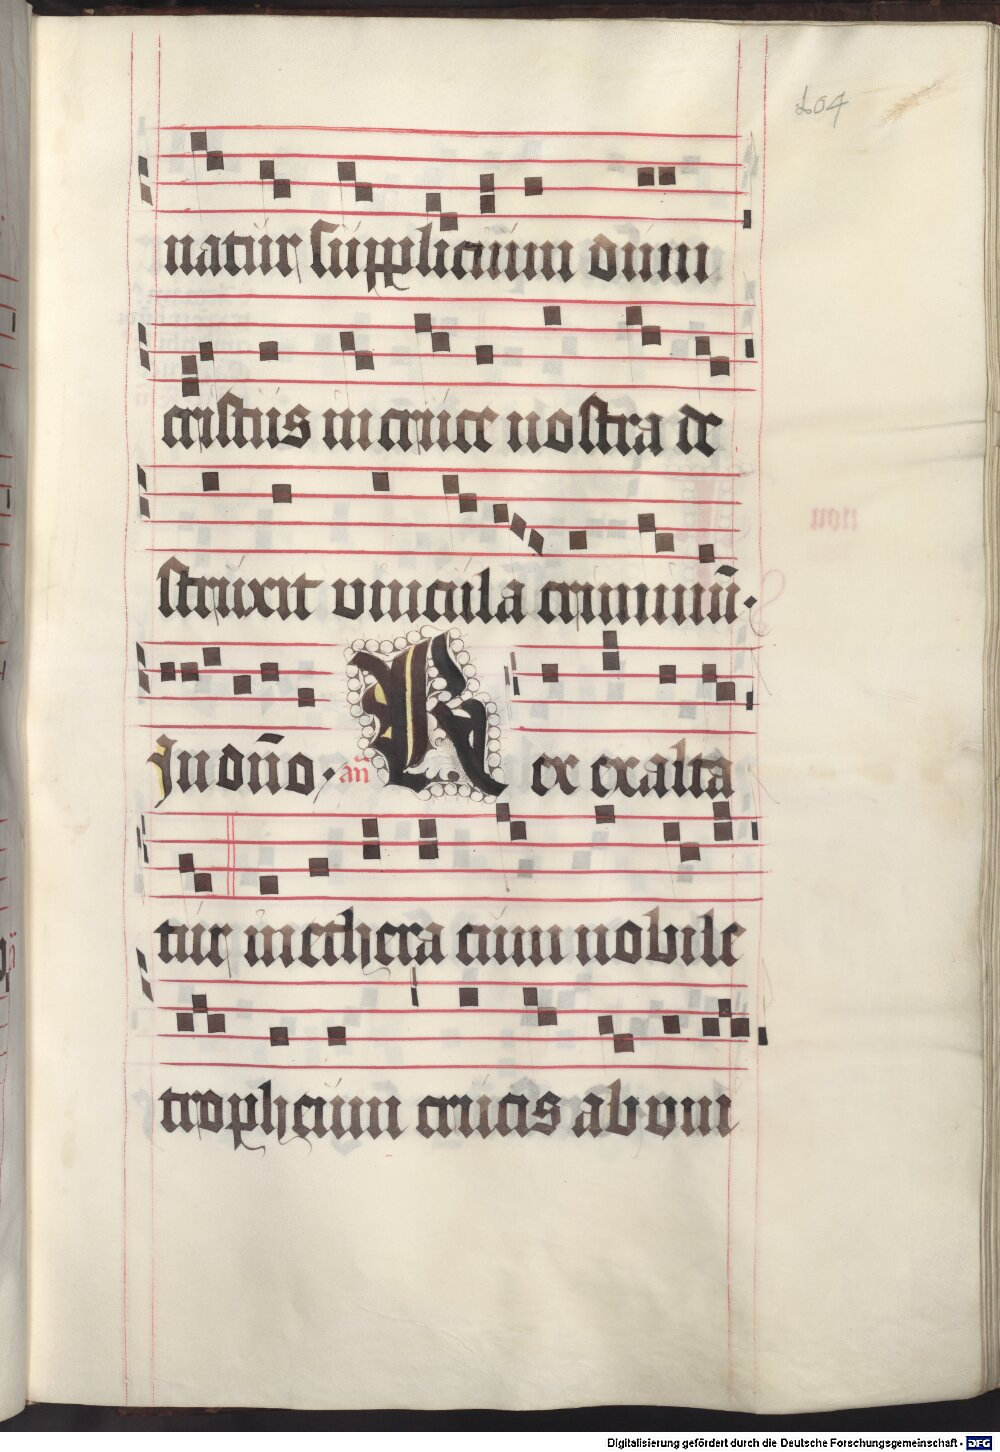 204
natur supplicium dum
cristus in cruce nostra de
struxit vincula criminū·
In dño· añ Rex exalta
tur in ethera cum nobile
tropheum crucis ab vni
Digitalisierung gefördert durch die Deutsche Forschungsgemeinschaft - DFG